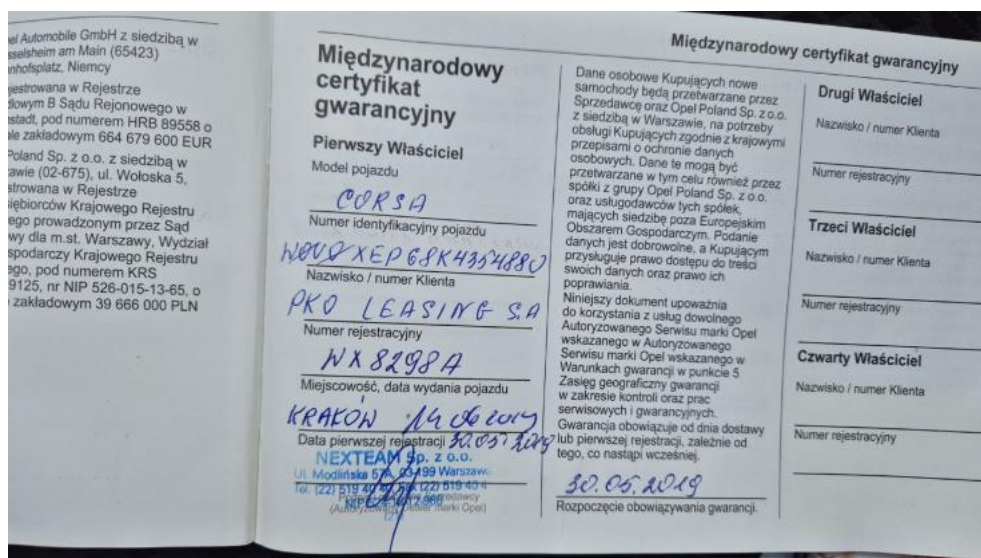 Automobile GmbH z siedzibą w
sselsheim am Main (65423)
nhofsplatz, Niemcy
jestrowana w Rejestrze
dlowym B Sądu Rejonowego w
stadt, pod numerem HRB 89558 o
le zakładowym 664 679 600 EUR
Poland Sp. z o.o. z siedzibą w
awie (02-675), ul. Wołoska 5,
strowana w Rejestrze
iębiorców Krajowego Rejestru
ego prowadzonym przez Sąd
wy dla m.st. Warszawy, Wydział
spodarczy Krajowego Rejestru
ego, pod numerem KRS
9125, nr NIP 526-015-13-65, o
zakładowym 39 666 000 PLN
Międzynarodowy
certyfikat
gwarancyjny
Pierwszy Właściciel
Model pojazdu
CORSA
Numer identyfikacyjny pojazdu
W0V0XEP68K4354880
Nazwisko / numer Klienta
PKO LEASING S.A
Numer rejestracyjny
WX8298A
Miejscowość, data wydania pojazdu
KRAKÓW 14.06.2019
Data pierwszej rejestracji 30.05.2019
NEXTEAM Sp. z o.o.
Ul. Modlińska 03-199 Warszawa
Tel. (22) 519 40 (22) 519 40 4
NIP
(Autoryzowany Dealer marki Opel)
Międzynarodowy certyfikat gwarancyjny
Dane osobowe Kupujących nowe
samochody będą przetwarzane przez
Sprzedawcę oraz Opel Poland Sp. z o.o.
z siedzibą w Warszawie, na potrzeby
obsługi Kupujących zgodnie z krajowymi
przepisami o ochronie danych
osobowych. Dane te mogą być
przetwarzane w tym celu również przez
spółki z grupy Opel Poland Sp. z o.o.
oraz usługodawców tych spółek,
mających siedzibę poza Europejskim
Obszarem Gospodarczym. Podanie
danych jest dobrowolne, a Kupującym
przysługuje prawo dostępu do treści
swoich danych oraz prawo ich
poprawiania.
Niniejszy dokument upoważnia
do korzystania z usług dowolnego
Autoryzowanego Serwisu marki Opel
wskazanego w Autoryzowanego
Serwisu marki Opel wskazanego w
Warunkach gwarancji w punkcie 5
Zasięg geograficzny gwarancji
w zakresie kontroli oraz prac
serwisowych i gwarancyjnych.
Gwarancja obowiązuje od dnia dostawy
lub pierwszej rejestracji, zależnie od
tego, co nastąpi wcześniej.
30.05.2019
Rozpoczęcie obowiązywania gwarancji.
Drugi Właściciel
Nazwisko / numer Klienta
Numer rejestracyjny
Trzeci Właściciel
Nazwisko / numer Klienta
Numer rejestracyjny
Czwarty Właściciel
Nazwisko / numer Klienta
Numer rejestracyjny